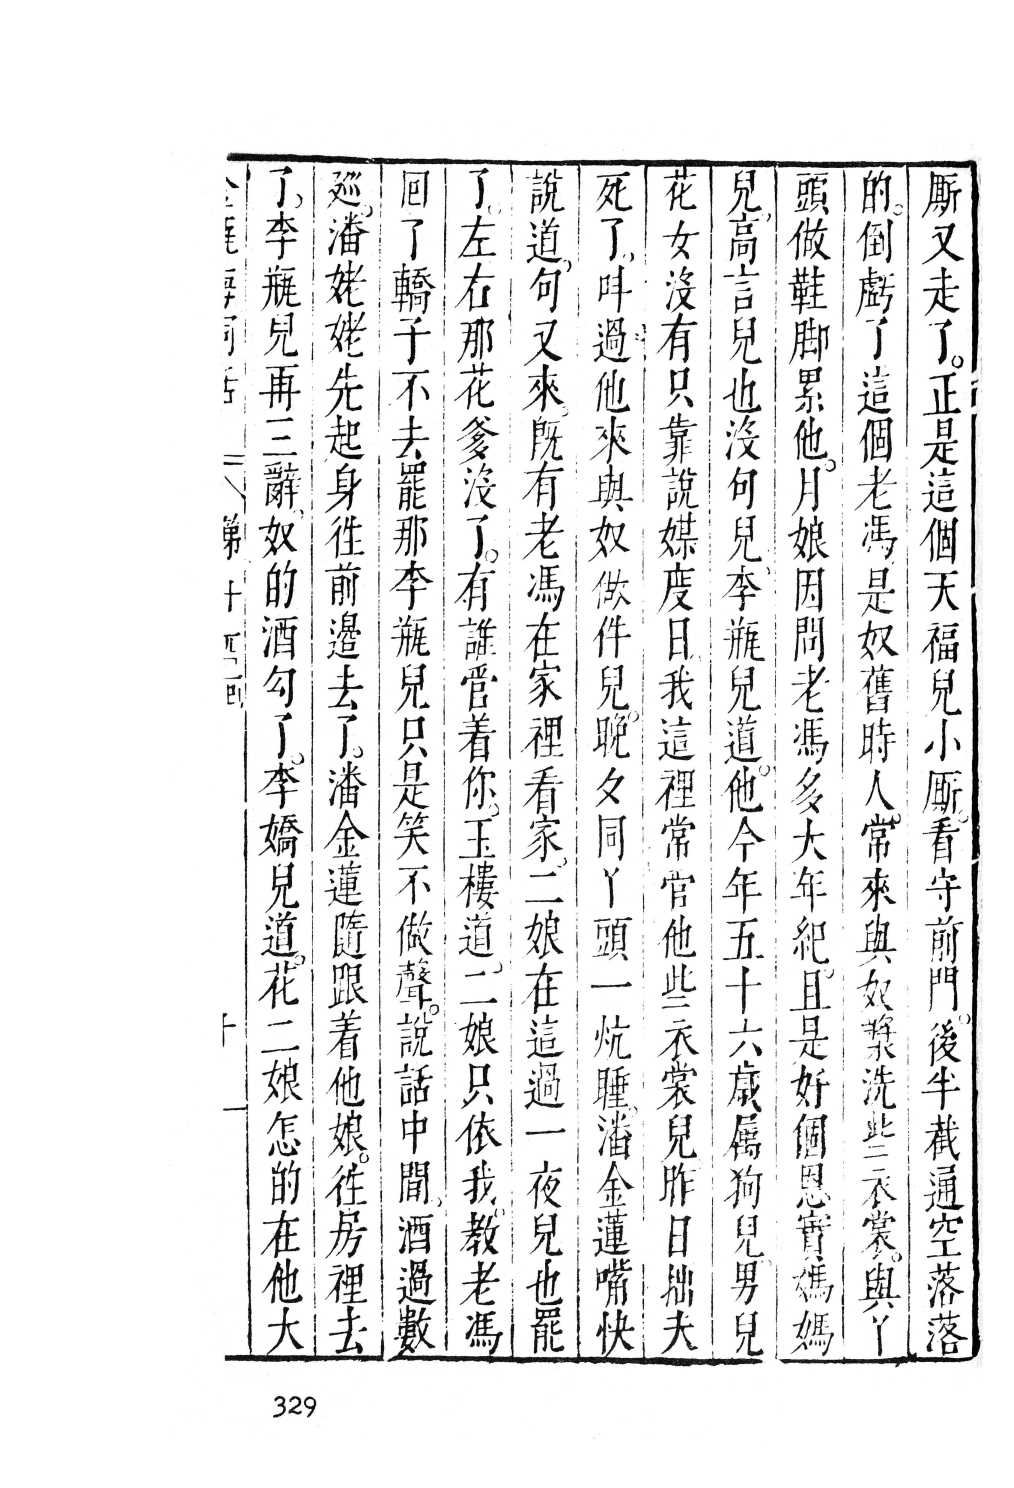 厮又走了。正是這個天福兒小厮。看守前門。後半截通空落落
的。倒虧了這個老馮。是奴舊時人。常來與奴漿洗些衣裳。與丫
頭做鞋脚累他。月娘因問老馮多大年紀。且是好個恩實媽媽
兒。高言兒也沒句兒。李瓶兒道。他今年五十六歲。属狗兒。男兒
花女沒有。只靠說媒度日。我這裡常管他些衣裳兒。昨日拙夫
死了。呌過他來與奴做件兒。晚夕同丫頭一炕睡。潘金蓮嘴快
說道。句又來。旣有老馮在家裡看家。二娘在這過一夜兒也罷
了。左右那花爹沒了。有誰管着你。玉樓道。二娘只依我。教老馮
囘了轎子不去罷。那李瓶兒只是笑不做聲。說話中間。酒過數
廵。潘姥姥先起身徃前邊去了。潘金蓮隨跟着他娘。徃房裡去
了。李瓶兒再三辭。奴的酒勾了。李嬌兒道。花二娘怎的在他大
第十四囬
十一
329